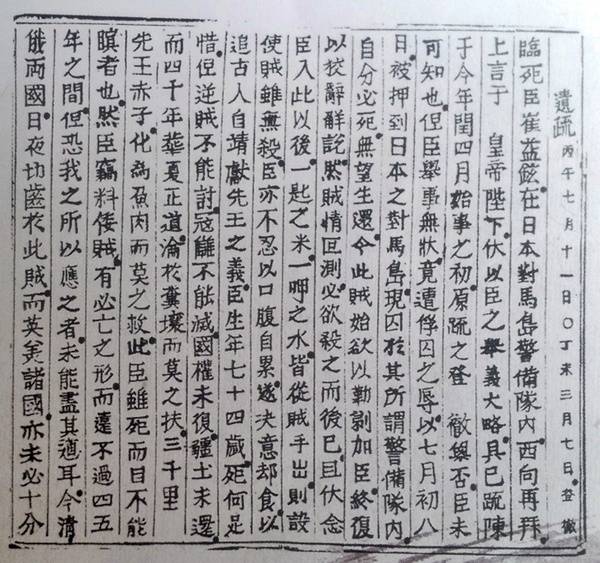 遺疏 丙午七月十一日○丁未三月七日登徹
臨死臣崔益鉉在日本對馬島警備隊內西向再拜
上言于 皇帝陛下伏以臣之擧義大略具已疏陳
于今年閏四月始事之初原疏之登 徹與否臣未
可知也但臣擧事無狀竟遭俘囚之辱以七月初八
日被押到日本之對馬島現囚於其所謂警備隊內
自分必死無望生還今此賊始欲以勒剃加臣終復
以狡辭詳說然賊情叵測必欲殺之而後已且伏念
臣入此以後一匙之米一呷之水皆從賊手出則設
使賊雖無殺臣亦不忍以口腹自累遂決意却食以
追古人自靖獻先王之義臣生年七十四歲死何足
惜但逆賊不能討寇讎不能滅國權未復疆土未還
而四十年華夏正道淪於糞壤而莫之扶三千里
先王赤子化為魚肉而莫之救此臣雖死而目不能
瞑者也然臣竊料倭賊有必亡之形而遠不過四五
年之間但恐我之所以應之者未能盡其道耳今清
俄兩國日夜切齒於此賊而英美諸國亦未必十分